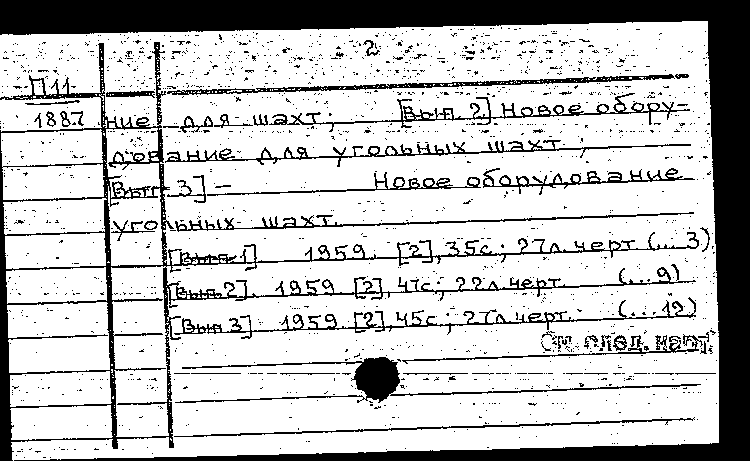 2
П11
1887 ние для шахт; [Вып. 2] Новое обору-
дование для угольных шахт;
[Вып. 3] - Новое оборудование
угольных шахт.
[Вып. 1] 1959. [2], 35с.; 27л. черт (... 3)
[Вып. 2]. 1959 [2], 47с; 22л. черт. (... 9)
[Вып 3] 1959. [2], 45с; 27л черт. (... 12)
См. след. карт.